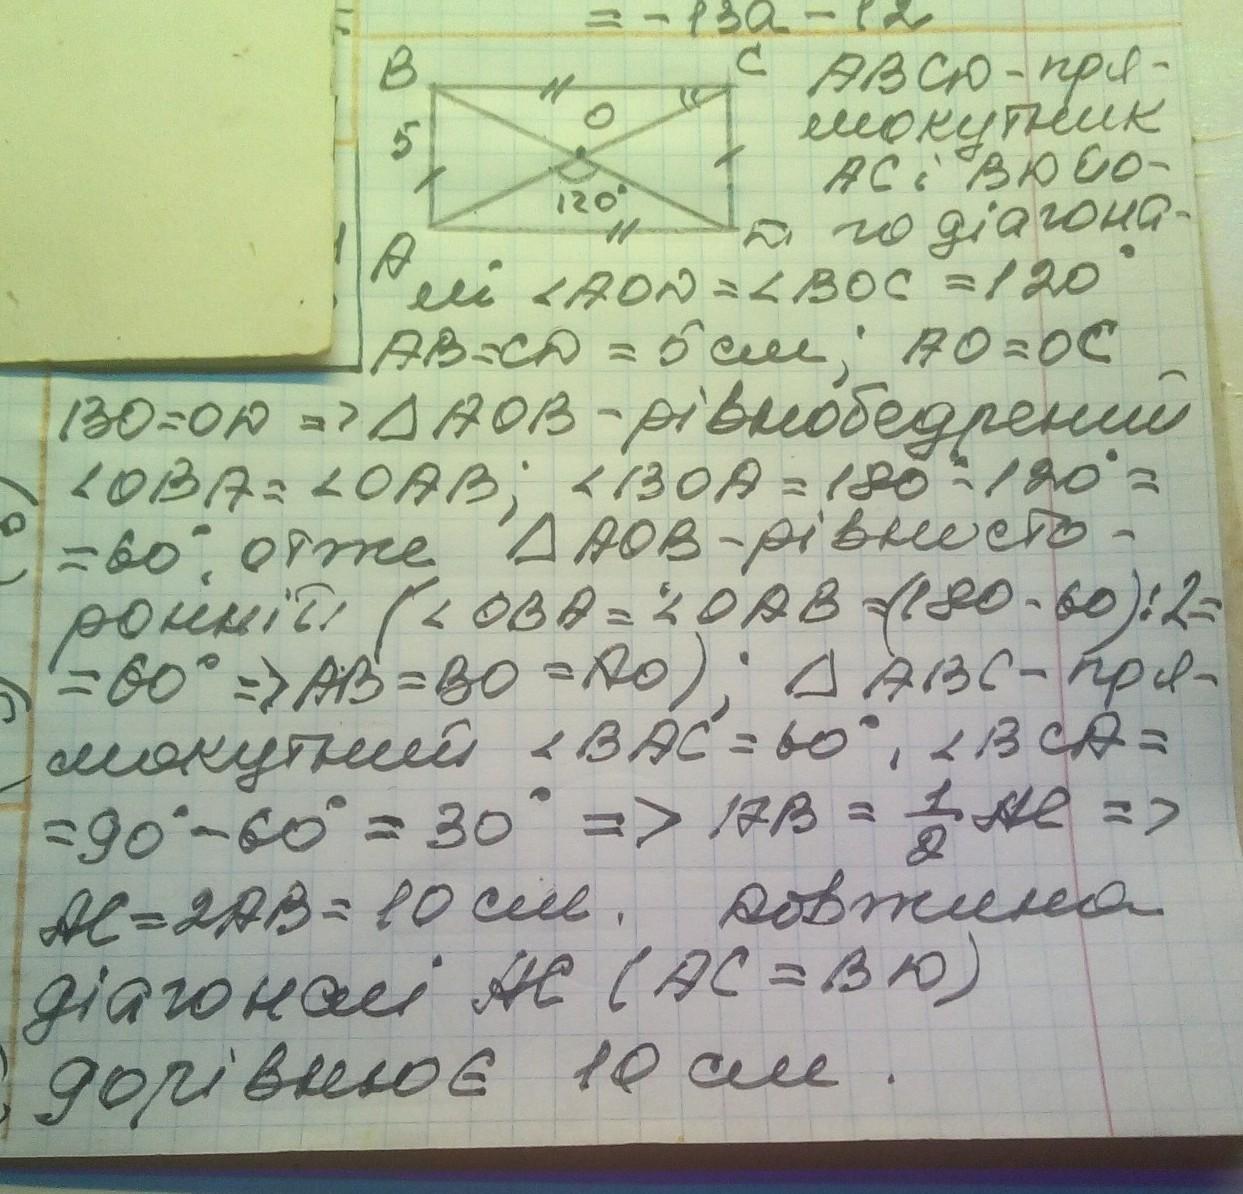 = -13a - 12
B
C
O
5
120°
A
D
ABCD - пря-
мокутник
AC i BD його
діагона-
лі <AOD = <BOC = 120°
AB = CD = 5 см; AO = OC
BO = OD => △ AOB - рівнобедрений
<OBA = <OAB; <BOA = 180° - 120° =
= 60°, отже △ AOB - рівносто-
ронній (<OBA = <OAB = (180 - 60) : 2 =
= 60° => AB = BO = AO); △ ABC - пря-
мокутний <BAC = 60°, <BCA =
= 90° - 60° = 30° => AB = 1/2 AC =>
AC = 2AB = 10 см. Довжина
діагоналі AC (AC = BD)
дорівнює 10 см.